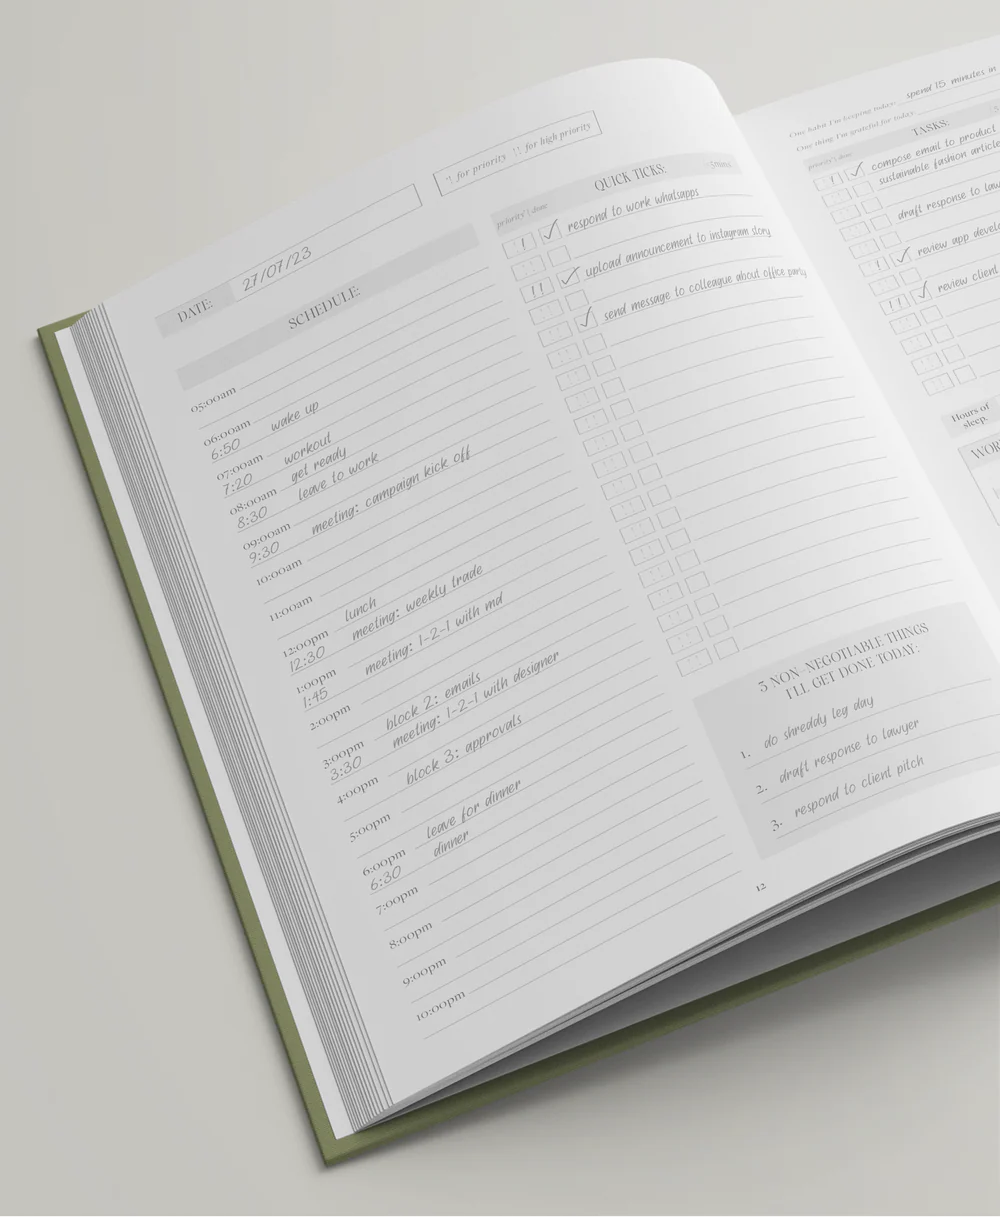 ! for priority !! for high priority
DATE: 27/07/23
SCHEDULE:
05:00am
06:00am
6:50 wake up
07:00am workout
7:20 get ready
08:00am leave to work
8:30
09:00am meeting: campaign kick off
9:30
10:00am
11:00am
12:00pm lunch
12:30 meeting: weekly trade
1:00pm meeting: 1-2-1 with md
1:45
2:00pm
3:00pm block 2: emails
3:30 meeting: 1-2-1 with designer
4:00pm block 3: approvals
5:00pm
6:00pm leave for dinner
6:30 dinner
7:00pm
8:00pm
9:00pm
10:00pm
QUICK TICKS:
priority | done
! ✓ respond to work whatsapps
!! ✓ upload announcement to instagram story
✓ send message to colleague about office party
3 NON -NEGOTIABLE THINGS
I'LL GET DONE TODAY:
1. do shreddy leg day
2. draft response to lawyer
3. respond to client pitch
12
One habit I'm keeping today: spend 15 minutes in
One thing I'm grateful for today
TASKS:
priority | done
! ✓ compose email to product
sustainable fashion article
draft response to law
! ✓ review app develo
!! ✓ review client
Hours of
sleep.
WOR